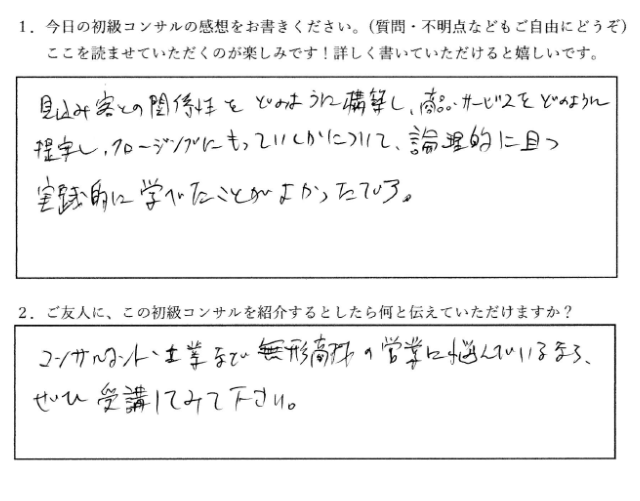 1. 今日の初級コンサルの感想をお書きください。(質問・不明点などもご自由にどうぞ)
ここを読ませていただくのが楽しみです!詳しく書いていただけると嬉しいです。
見込み客との関係性をどのように構築し、商品・サービスをどのように
提案し、クロージングにもっていくかについて、論理的に且つ
実践的に学べたことがよかったです。
2. ご友人に、この初級コンサルを紹介するとしたら何と伝えていただけますか?
コンサルタント・士業など無形商材の営業に悩んでいるなら、
ぜひ受講してみて下さい。